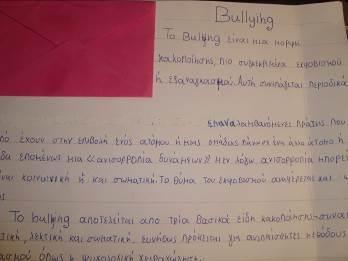 Bullying
Το Bullying είναι μια μορφή
κακοποίησης, πιο συγκεκριμένα εκφοβισμού
ή εξαναγκασμού. Αυτή συνάγεται περιοδικά
επαναλαμβανόμενες πράξεις που
από έχουν στην επιβολή ενός ατόμου ή μιας ομάδας πάνω σε ένα άλλο άτομο ή
δα επομένως μια «ανισορροπία δυνάμεων» Η εν λόγω ανισορροπία μπορεί
είναι κοινωνική ή και σωματική. Το θύμα του εκφοβισμού αναφέρεται και
ως
Το bullying αποτελείται απο τρία βασικά είδη κακοποίησης: συναι
τική, λεκτική και σωματική. Συνήθως πρόκειται για αναπαίσθητες μεθόδους
ασμού όπως η ψυχολογική χειραγώγηση.